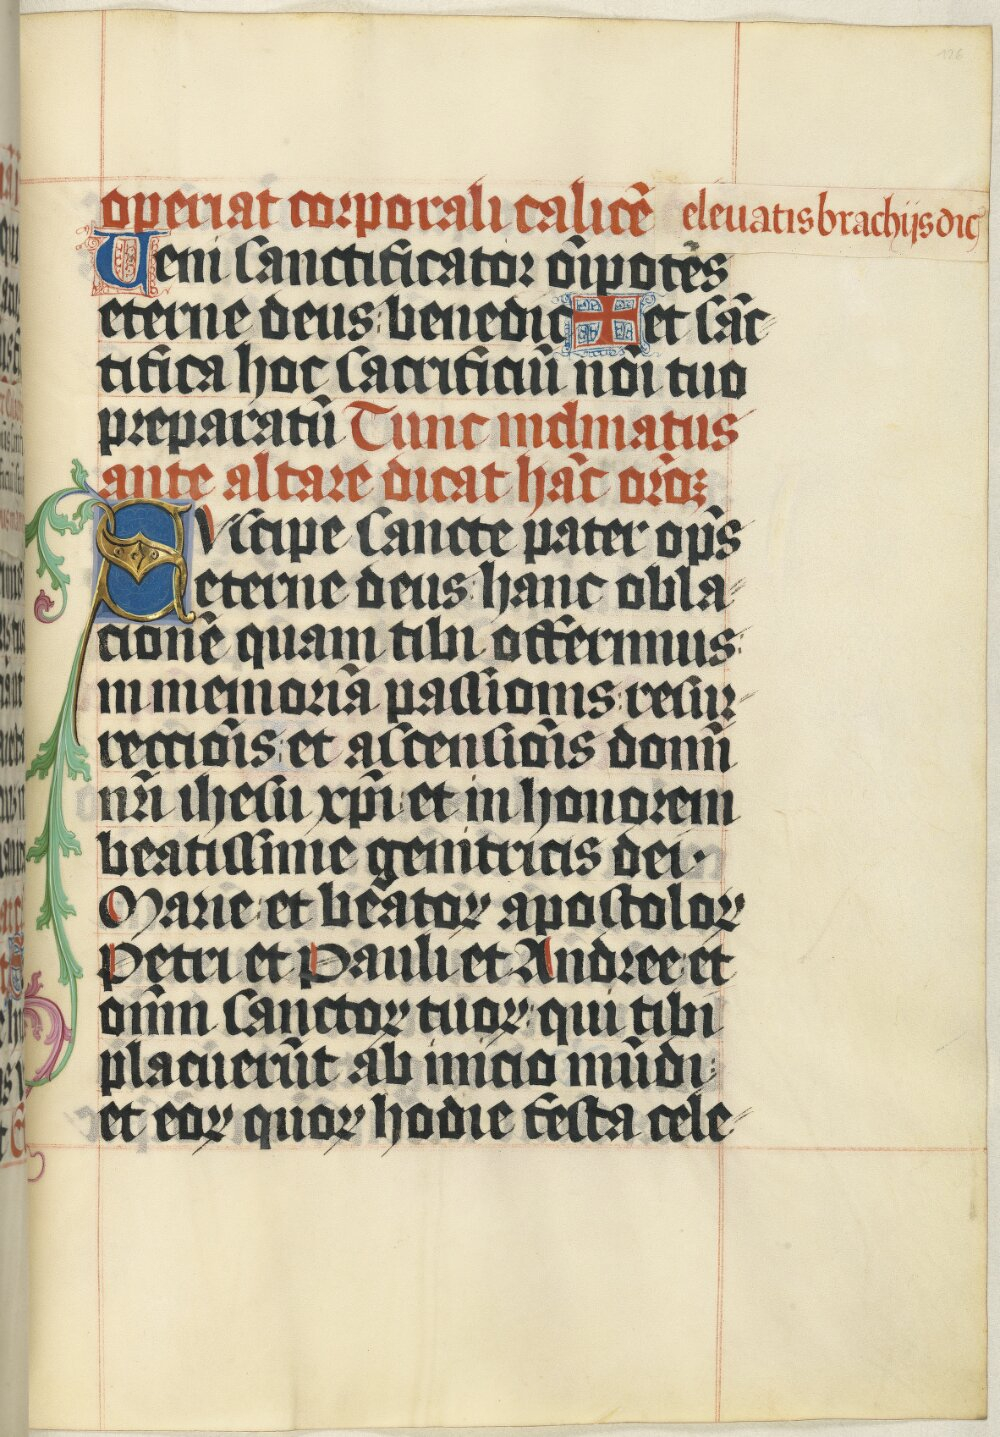 126
operiat corporali calicē elevatis brachijs dic
Ueni sanctificator oīpotēs
eterne deus: benedic ✠ et sāc⸗
tifica hoc sacrificiū nōi tuo
preparatū Tunc inclinatus
ante altare dicat hāc orōꝫ
SVscipe sancte pater opīs
eterne deus: hanc obla⸗
cionē quam tibi offerimus:
in memoriā passionis: resur⸗
rectiōis: et ascensiōis domī
nr̄i ihesu xp̄i: et in honorem
beatissime genitricis dei·
Marie: et bēatoꝝ apostoloꝝ
Petri et Pauli et Andree: et
omīm sanctoꝝ tuoꝝ: qui tibi
placuerūt ab inicio mūdi:
et eoꝝ quoꝝ hodie festa cele⸗